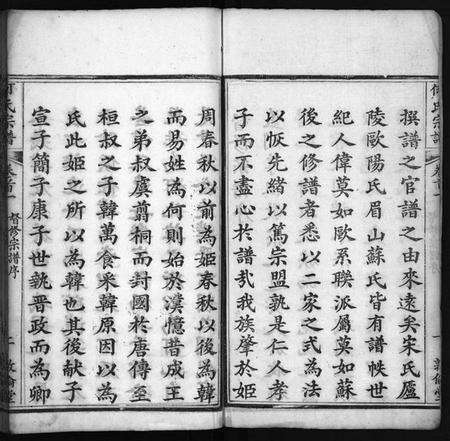 撰譜之官譜之由來遠矣宋氏廬
陵歐陽氏眉山蘇氏皆有譜帙世
紀人偉莫如歐系聯派屬莫如蘇
後之修譜者悉以二家之式為法
以恢先緒以篤宗盟孰是仁人孝
子而不盡心於譜哉我族肇於姬
周春秋以前為姬春秋以後為韓
而易姓為何則始於漢憶昔成王
之弟叔虞翦桐而封國於唐傳至
桓叔之子韓萬食采韓原因以為
氏此姬之所以為韓也其後獻子
宣子簡子康子世執晉政而為卿
何氏宗譜
卷首
督修宗譜序
二
敦倫堂